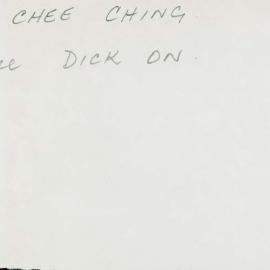 CHEE CHING
DICK ON.